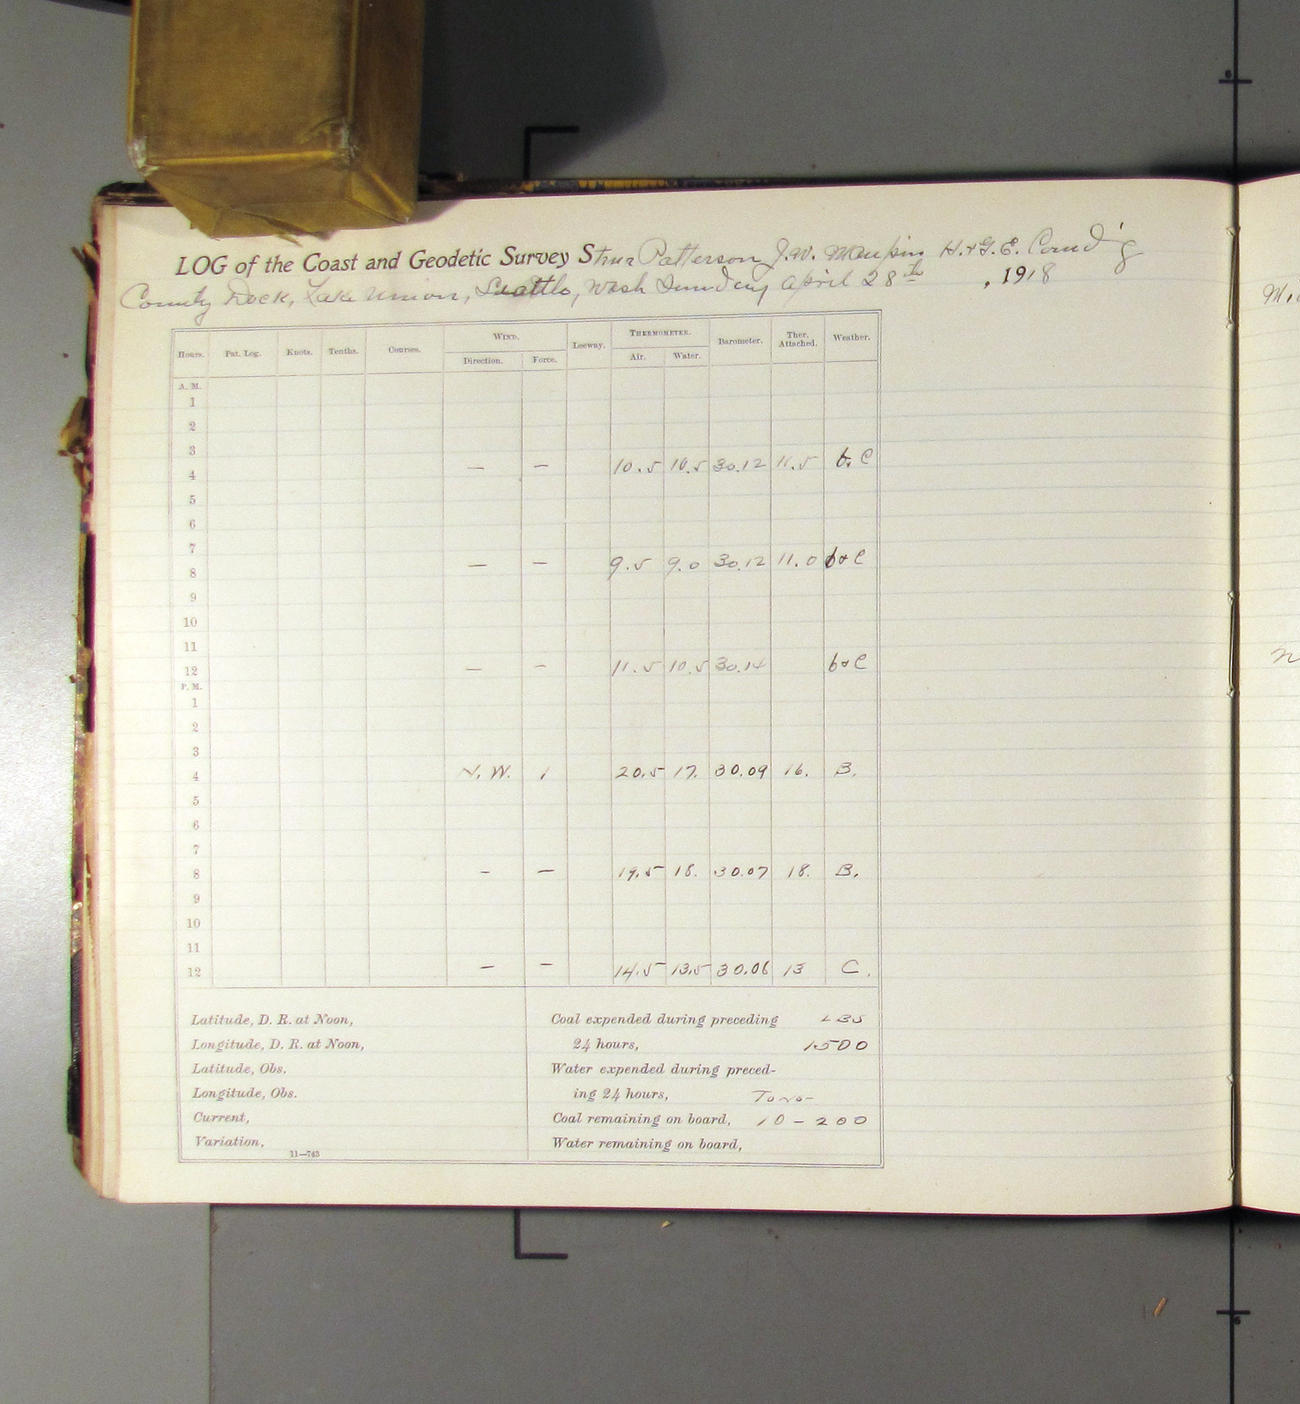 LOG of the Coast and Geodetic Survey Stmr Patterson J.W. Maupin H.&G.E. Comd'g
County Dock, Lake Union, Seattle, Wash Sunday April 28th, 1918
Hours. Pat. Log. Knots. Tenths. Courses. WIND. Leeway. THERMOMETER. Barometer. Ther. Attached. Weather.
Direction. Force. Air. Water.
A. M.
1
2
3
4 — — 10.5 10.5 30.12 11.5 b. C
5
6
7
8 — — 9.5 9.0 30.12 11.0 b & C
9
10
11
12 — — 11.5 10.5 30.14 b & C
P. M.
1
2
3
4 N. W. 1 20.5 17. 30.09 16. B.
5
6
7
8 – — 19.5 18. 30.07 18. B.
9
10
11
12 — — 14.5 13.5 30.06 13 C.
Latitude, D. R. at Noon, Coal expended during preceding
Longitude, D. R. at Noon, 24 hours, 1500
Latitude, Obs. Water expended during preced-
Longitude, Obs. ing 24 hours,
Current, Coal remaining on board, 10 – 200
Variation, Water remaining on board,
11—743